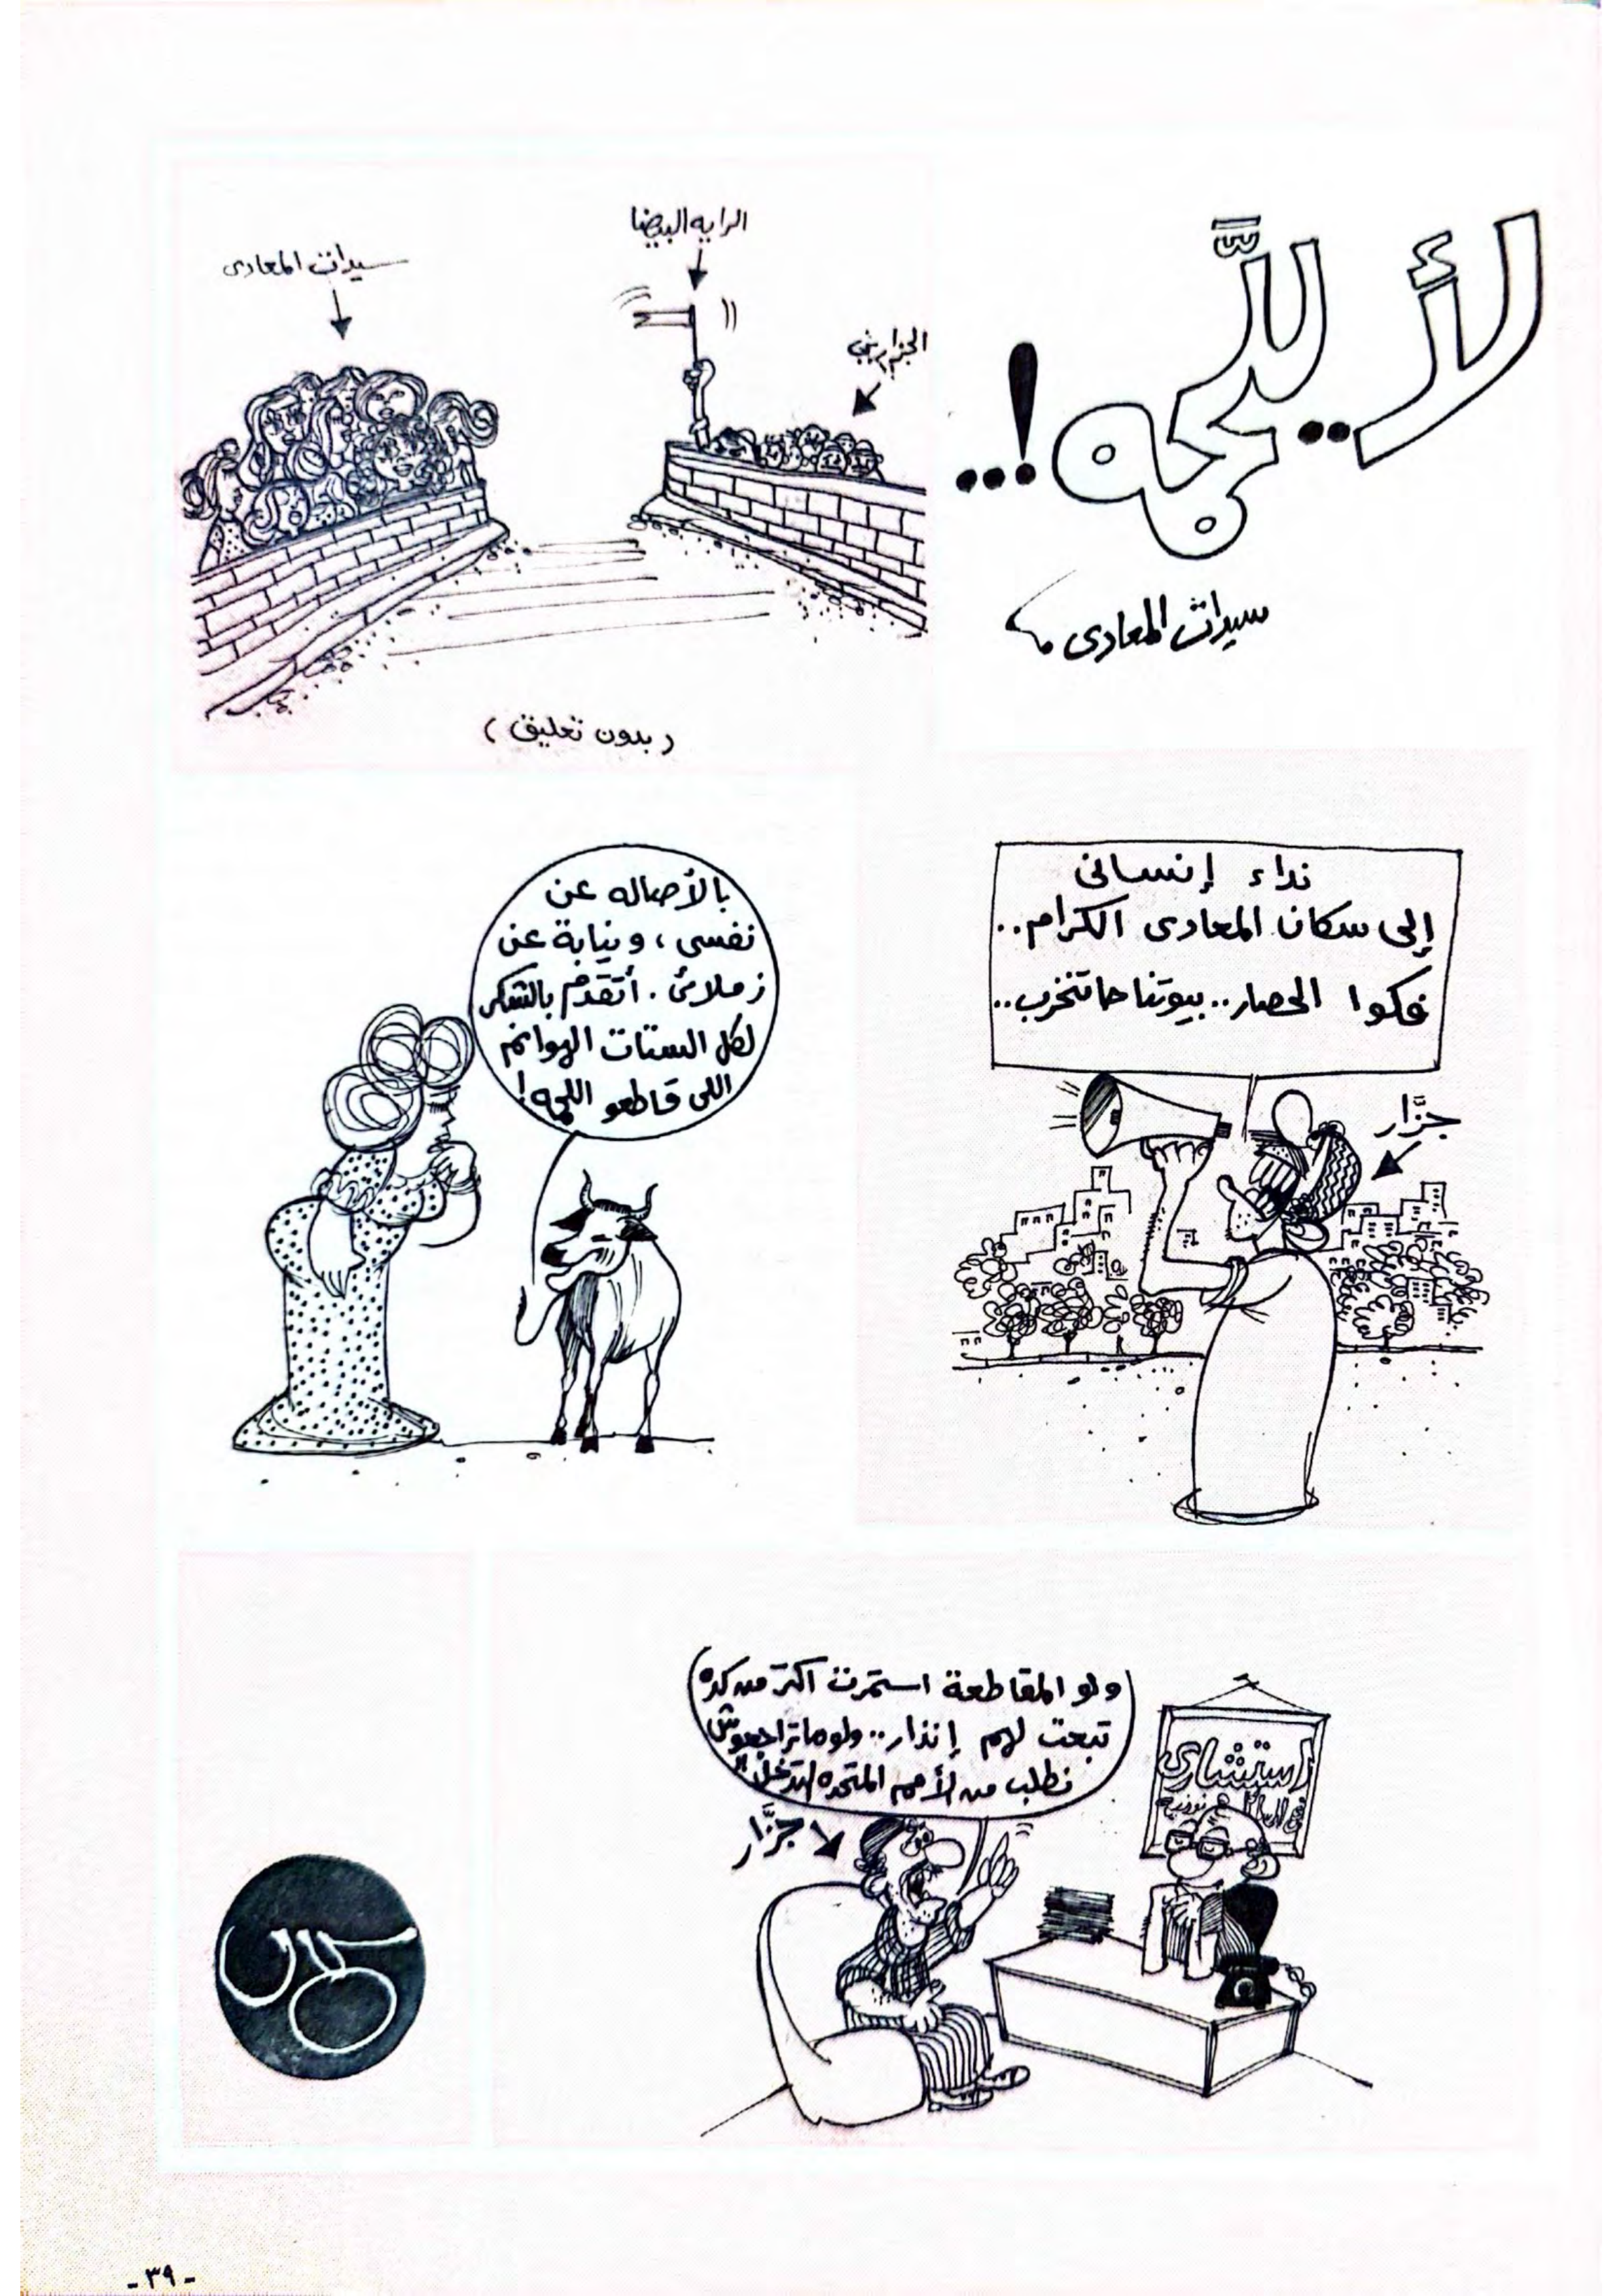 لأ.. للّحمه !...
سيدات المعادى
سيدات المعادى
الرايه البيضا
الجزارين
(بدون تعليق)
نداء إنسانى
إلى سكان المعادى الكرام..
فكوا الحصار.. بيوتنا حاتتخرب..
جزَّار
بالأصاله عن
نفسى، ونيابة عن
زملائى. أتقدم بالشكر
لكل الستات الهوانم
اللى قاطعو اللحمه!
ولو المقاطعة استمرت اكتر من كده
تبعت لهم إنذار.. ولو ماتراجعوش
نطلب من الأمم المتحده التدخل!!
جزَّار
استشارى
- ٣٩ -